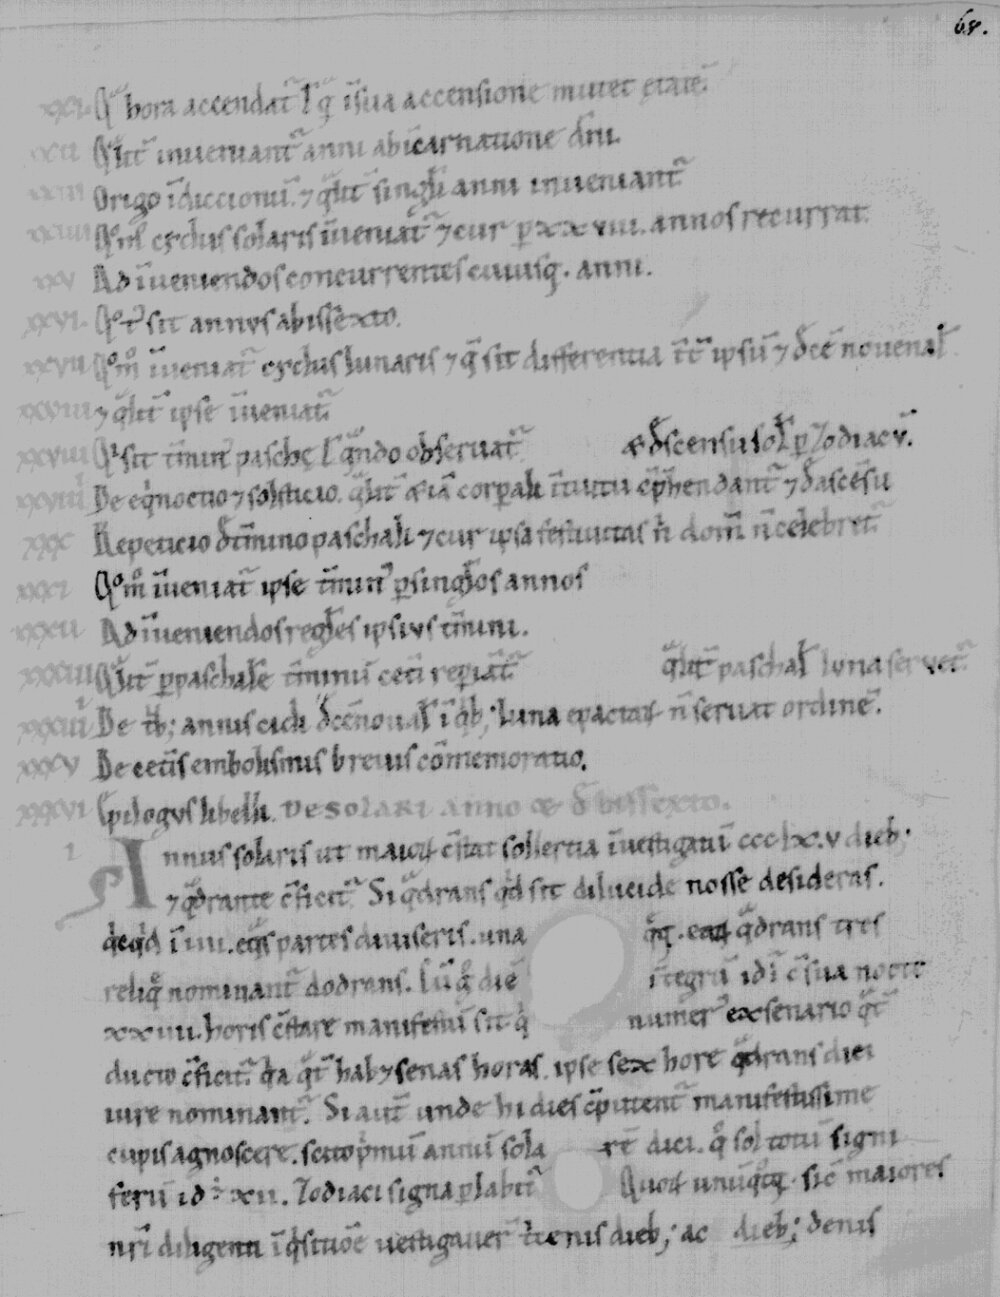 68.
xxi. Qͣ hora accendat᷑ l q̄ ī sua accensione mutet etatē.
xxii Qͣlit᷑ inueniant᷑ anni ab īcarnatione dn̄i.
xxiii Origo īdiccionū. ⁊ qͣlit᷑ singl̄i anni inueniant᷑
xxiiii Qm̄ cyclus solaris īueniat᷑ ⁊ cur ꝑ xxviii. annos recurrat
xxv Ad īueniendos concurrentes cuiusq. anni.
xxvi. sit annus a bissexto.
xxvii Qͦm̊ īueniat᷑ cyclus lunaris ⁊ q̄ sit differentia īt᷑ ipsū ⁊ dec̄ nouenal̄
xxviii ⁊ qͣlit᷑ ipse īueniat᷑
xxviiii Qͥ sit t᷑min᷒ paschę l qͣndo obseruat᷑ & dscensu sol̄ ꝑ Zodiacū.
De eqͥnoctio ⁊ solsticio. qͣlit᷑ etiā corporali ītuitu cp̄hendant᷑ ⁊ d ascēsu
xxx Repeticio d t᷑mino paschali ⁊ cur ipsa festiuitas ñ dom̄ n̄ celebret᷑
xxxi Qͦm̊ īueniat᷑ ipse t᷑min᷒ ꝑ singl̄os annos
xxxii Ad īueniendos regl̄es ipsius t᷑mini.
xxxiii Qͣlit᷑ ꝑ paschalē t᷑minū cet̄i reꝑiāt᷑ qͣlit᷑ paschal̄ luna seruet᷑.
xxxiiii De trib; annis cicli dec̄noual̄ ī qͥb; luna epactaꝝ n̄ seruat ordinē.
xxxv De cet᷑is embolismis breuis cōmemoratio.
xxxvi Epilogus libelli. De solari anno & d bissexto.
i Annus solaris ut maioꝝ c̄stat sollertia īuestigatū ccclx.v dieb;
⁊ qͣdrante c̄ficit᷑. Si qͣdrans qͥd sit dilucide nosse desideras.
qͥcqͥd ī iiii. eqͣs partes diuiseris. una qͣdrans tres
reliqͣ nominant᷑ dodrans. diē ītegrū id ī c̄ sua nocte
xxiiii. horis c̄stare manifestū sit qͥ numer᷒ ex senario qͣt᷑
ducto c̄ficit᷑. qͥa qͣt᷑ hab; senas horas. ipse sex hore qͣdrans diei
iure nominant᷑. Si aut᷑ unde hi dies cp̄utent᷑ manifestissime
cupis agnoscere. scito pͥmū annū sola rē dici. qͣ sol totū signi
ferū id ē xii. Zodiaci signa ꝑlabit᷑ Quoꝝ unūqͦdq;. sic̄ maiores
nr̄i diligenti īqͥsitiōe uestigauer̄ t᷑cenis dieb; ac dieb; denis